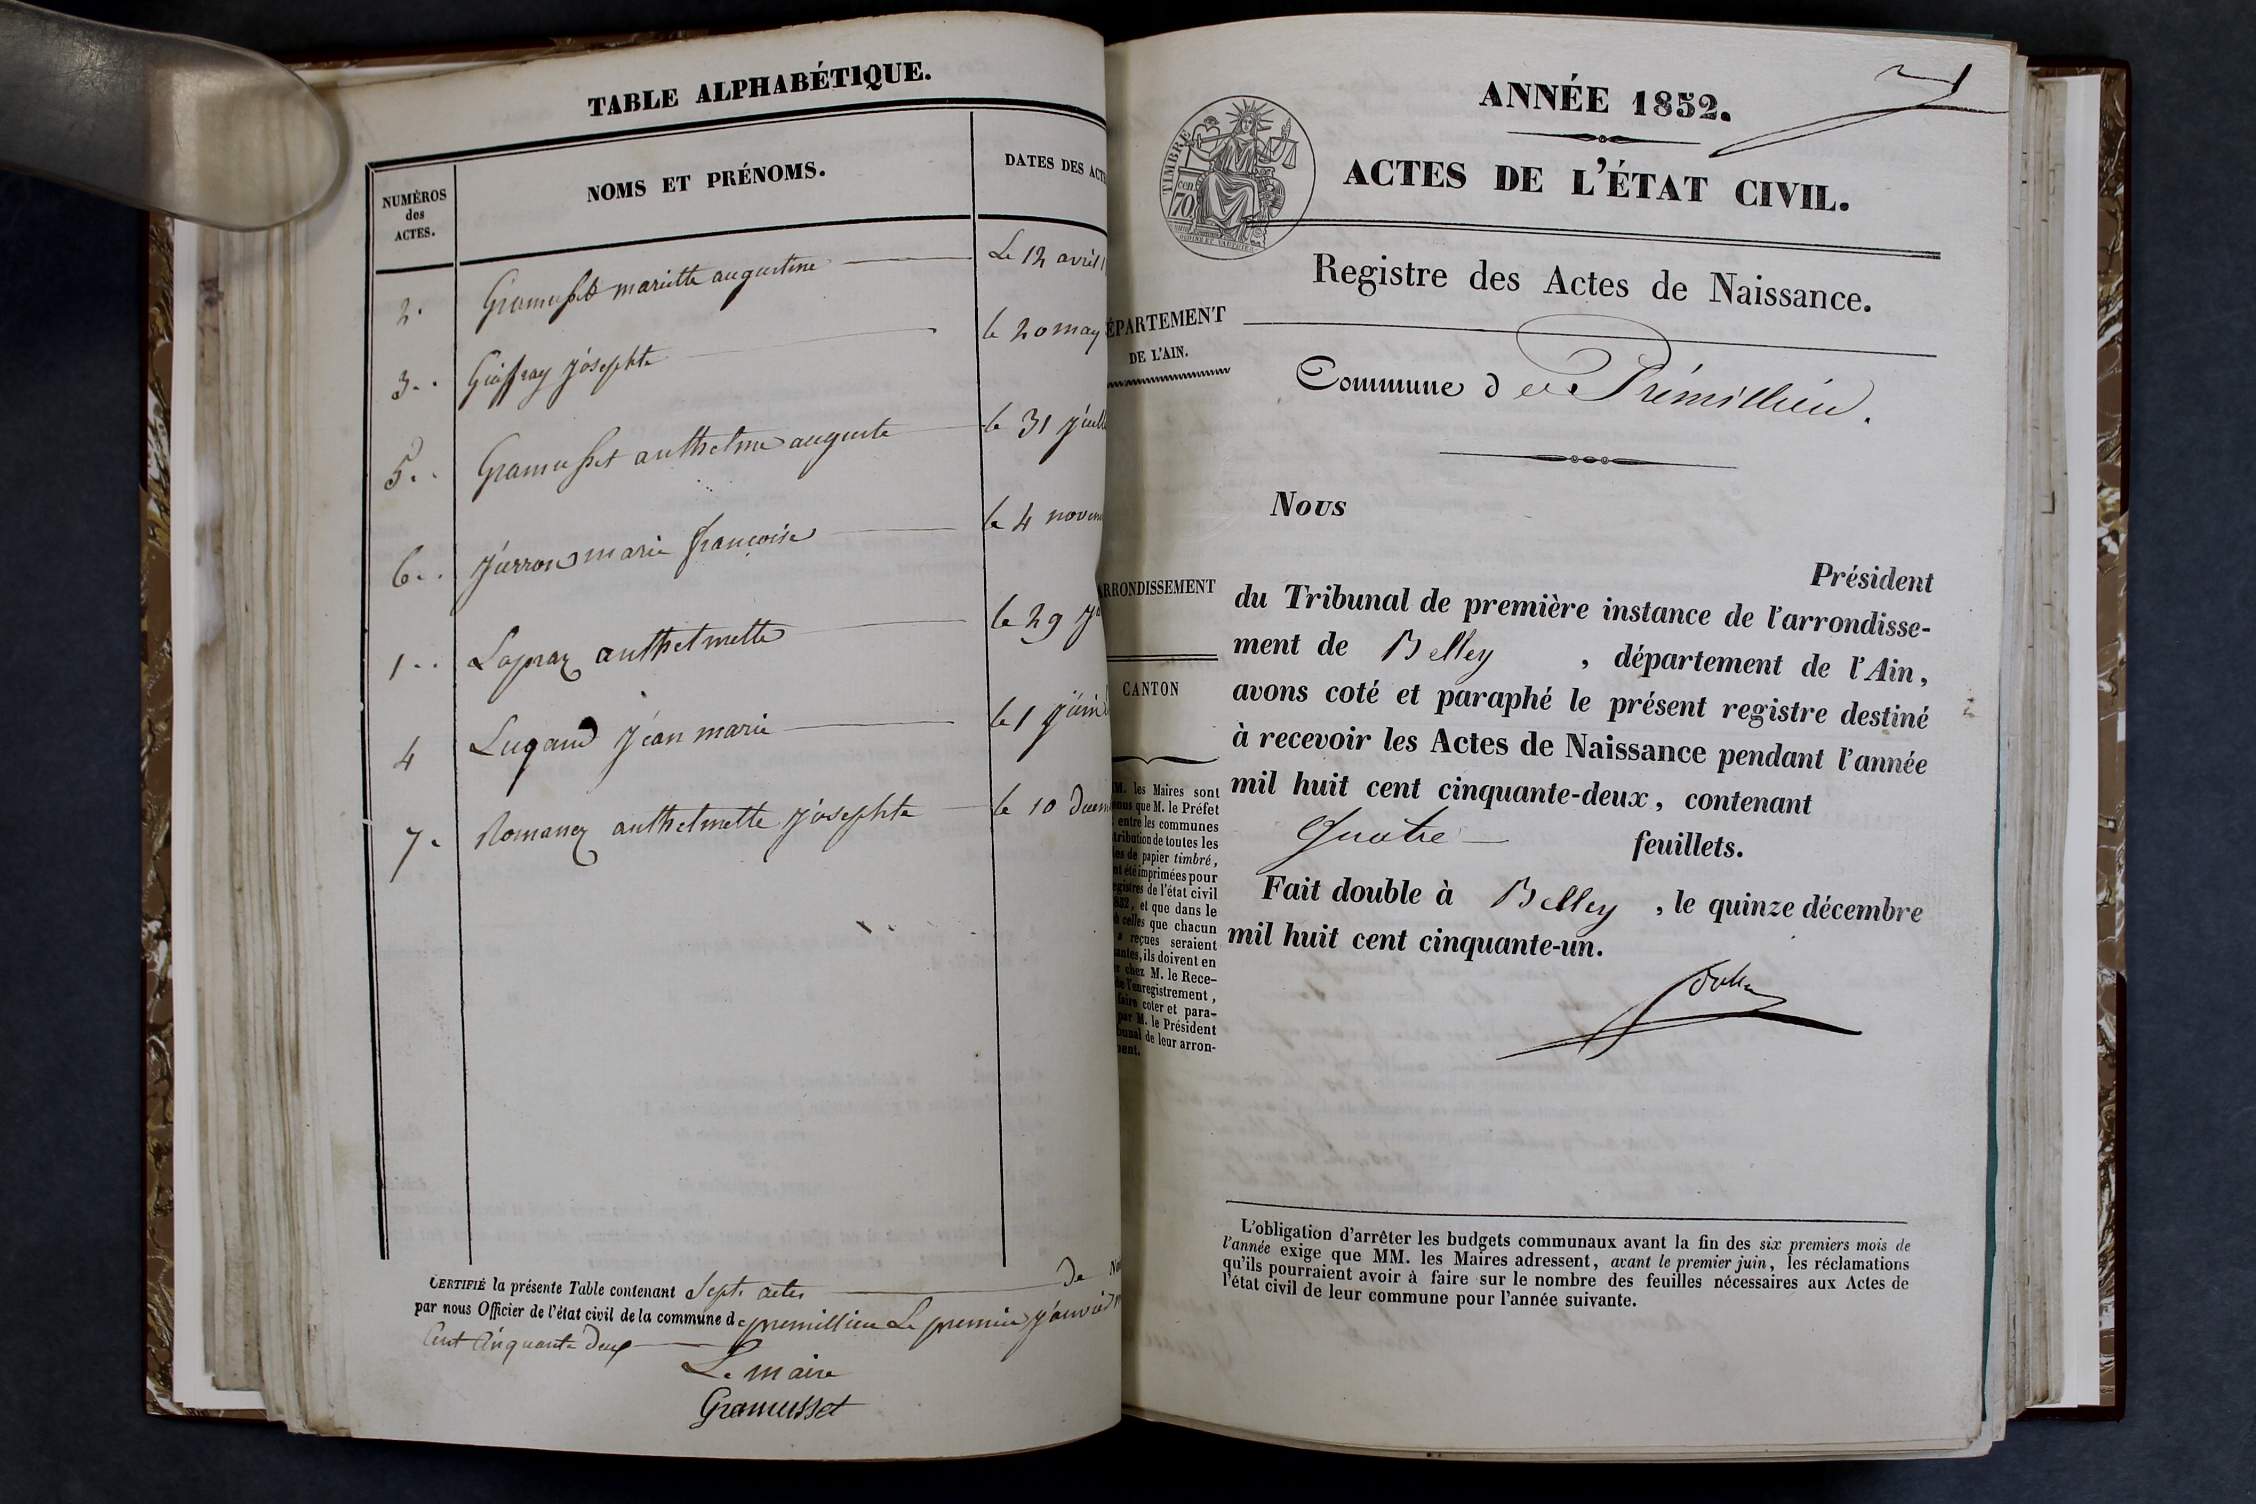 TABLE ALPHABÉTIQUE.
NUMÉROS
des
ACTES.
NOMS ET PRÉNOMS.
DATES DES ACTE
2. Gramusset mariette augustine Le 12 avril
3. Gioffray josephte le 20 may
5. Gramusset anthelme auguste le 31 juill
6. Jurron marie françoise le 4 novem
1. Lapraz anthelmette le 29 ja
4 Lugand jean marie le 1 juin
7. Romanez anthelmette josephte le 10 decem
CERTIFIÉ la présente Table contenant Sept actes de
par nous Officier de l'état civil de la commune de premillieu Le premier janvier
Cent Cinquante deux
Le maire
Gramusset
ANNÉE 1852.
TIMBRE
cen
70
ACTES DE L'ÉTAT CIVIL.
Registre des Actes de Naissance.
ÉPARTEMENT
DE L'AIN.
Commune de Prémillieu.
Nous
Président
ARRONDISSEMENT
du Tribunal de première instance de l'arrondisse-
ment de Belley, département de l'Ain,
CANTON
avons coté et paraphé le présent registre destiné
à recevoir les Actes de Naissance pendant l'année
mil huit cent cinquante-deux, contenant
Quatre feuillets.
Fait double à Belley, le quinze décembre
mil huit cent cinquante-un.
M. les Maires sont
enus que M. le Préfet
entre les communes
tribution de toutes les
es de papier timbré,
nt été imprimées pour
egistres de l'état civil
852, et que dans le
celles que chacun
a reçues seraient
santes, ils doivent en
r chez M. le Rece-
de l'enregistrement,
faire coter et para-
par M. le Président
bunal de leur arron-
ment.
L'obligation d'arrêter les budgets communaux avant la fin des six premiers mois de
l'année exige que MM. les Maires adressent, avant le premier juin, les réclamations
qu'ils pourraient avoir à faire sur le nombre des feuilles nécessaires aux Actes de
l'état civil de leur commune pour l'année suivante.